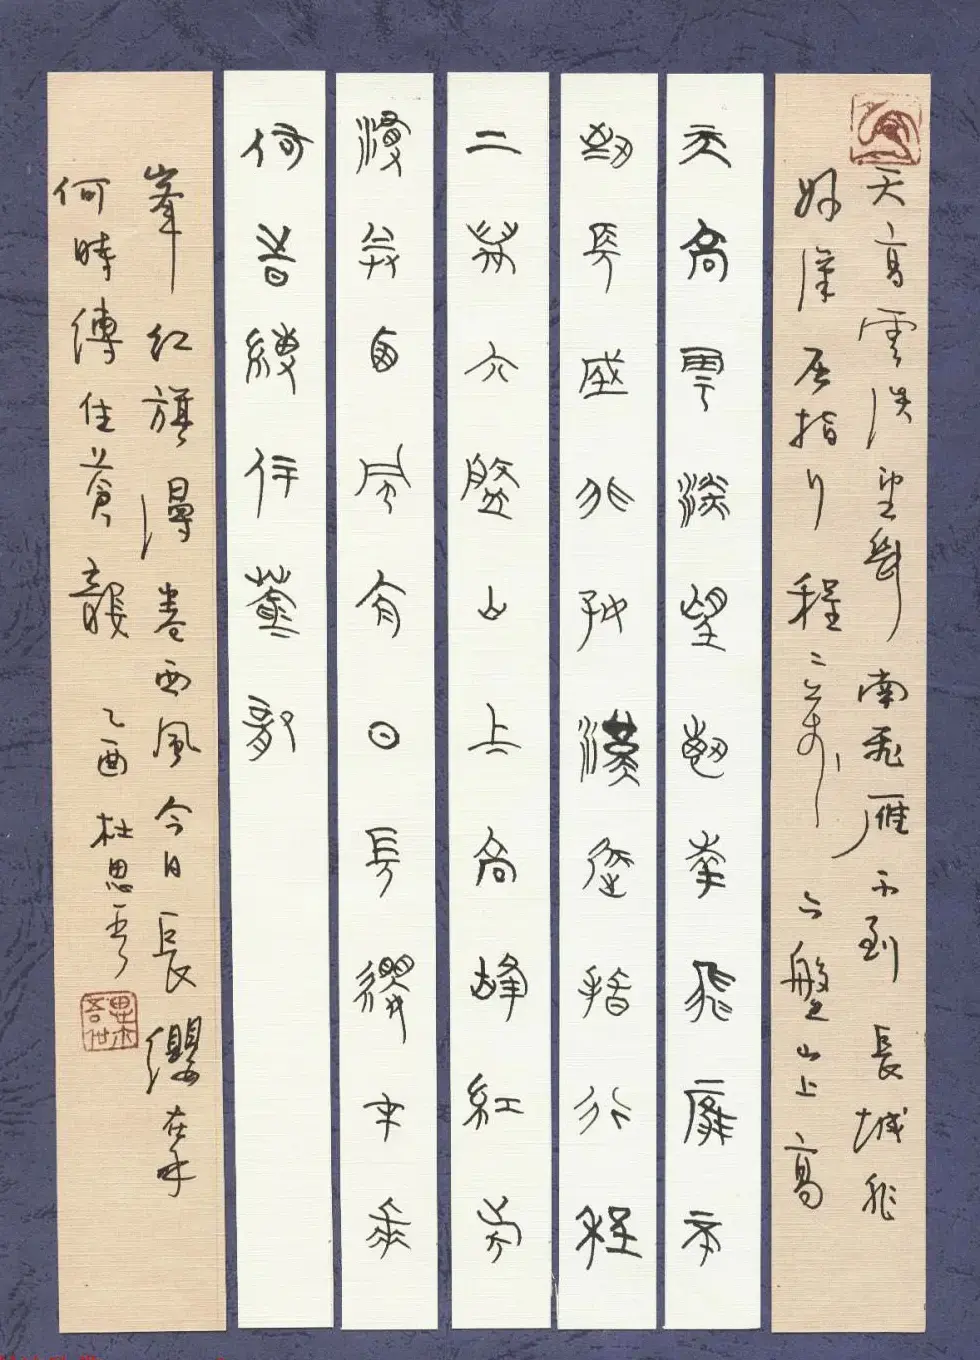 天高雲淡望斷南飛雁不到長城非
好漢屈指行程二万六盤山上高
天高雲淡望斷南飛雁不
到長城非好漢屈指行程
二萬六盤山上高峰紅旗
漫卷西風今日長纓在手
何時縛住蒼龍
峯紅旗漫卷西風今日長纓在手
何時縛住蒼龍 乙酉 杜思